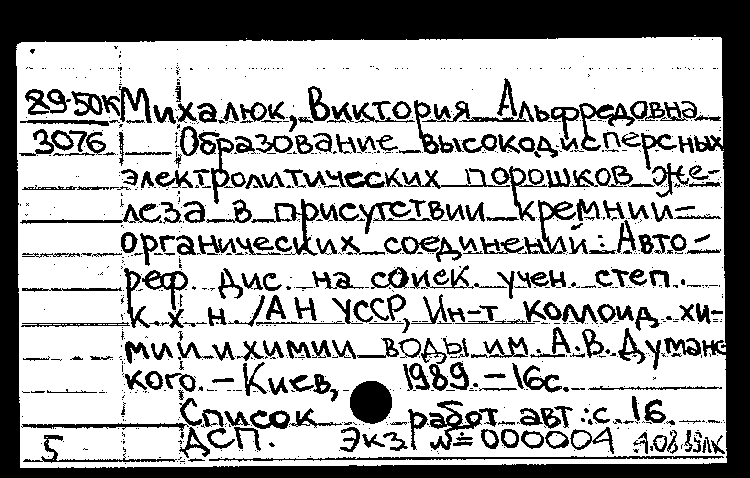 89-50К Михалюк, Виктория Альфредовна
3076 Образование высокодисперсных
электролитических порошков же-
леза в присутствии кремний-
органических соединений: Авто-
реф. дис. на соиск. учен. степ.
к. х. н. /АН УССР, Ин-т коллоид. хи-
мии и химии воды им. А.В. Думанс
кого. – Киев, 1989. – 16с.
Список работ авт.: с. 16.
5 ДСП. Экз. № 000004